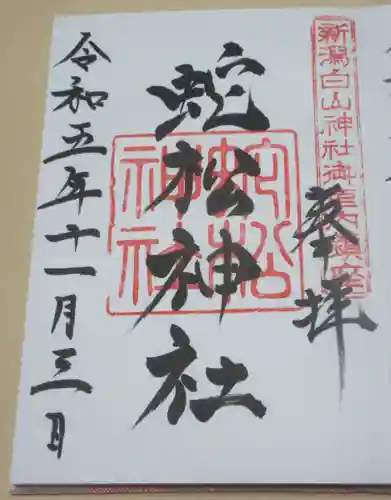 新潟白山神社御境内鎮座
奉拝
蛇松神社
蛇松神社
令和五年十一月三日